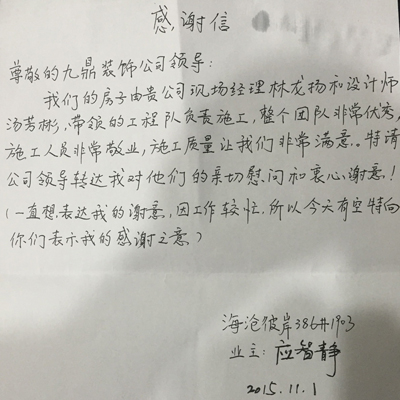 感谢信
尊敬的九鼎装饰公司领导:
我们的房子由贵公司现场经理林龙扬和设计师
汤芳彬,带领的工程队负责施工,整个团队非常优秀,
施工人员非常敬业,施工质量让我们非常满意。特请
公司领导转达我对他们的亲切慰问和衷心谢意!
(一直想表达我的谢意,因工作较忙,所以今天有空特向
你们表示我的感谢之意)
海沧彼岸386#1903
业主:应智静
2015.11.1